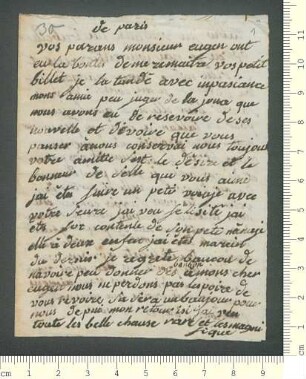 30
1
de paris
vos parans monsieur eugen ont
eu la bonte de me remaitre vos petit
billet je la tandé avec inpasiance
mons amie peu juger de la joua que
nous avons eu de resevoire de ses
nouvelle et de voire que vous
panser a nous conservai nous toujour
votre amitie s'est le désire et le
bonneur de selle qui vous aime
jai éte faire un petit voiaje avec
votre seure jai vou felisité jai
éte for contente de son petitménaje
elle à deux enfan jai étai marain
du dernier je regrete baucou de
navoire peu donner des bonbon à mons cher
eugen nous ni perdons pas lespoire de
vous revoire sa sera un bau jour pour
nous depuis mon retour isi jai veu
toute les belle chause rare et les magni
fique